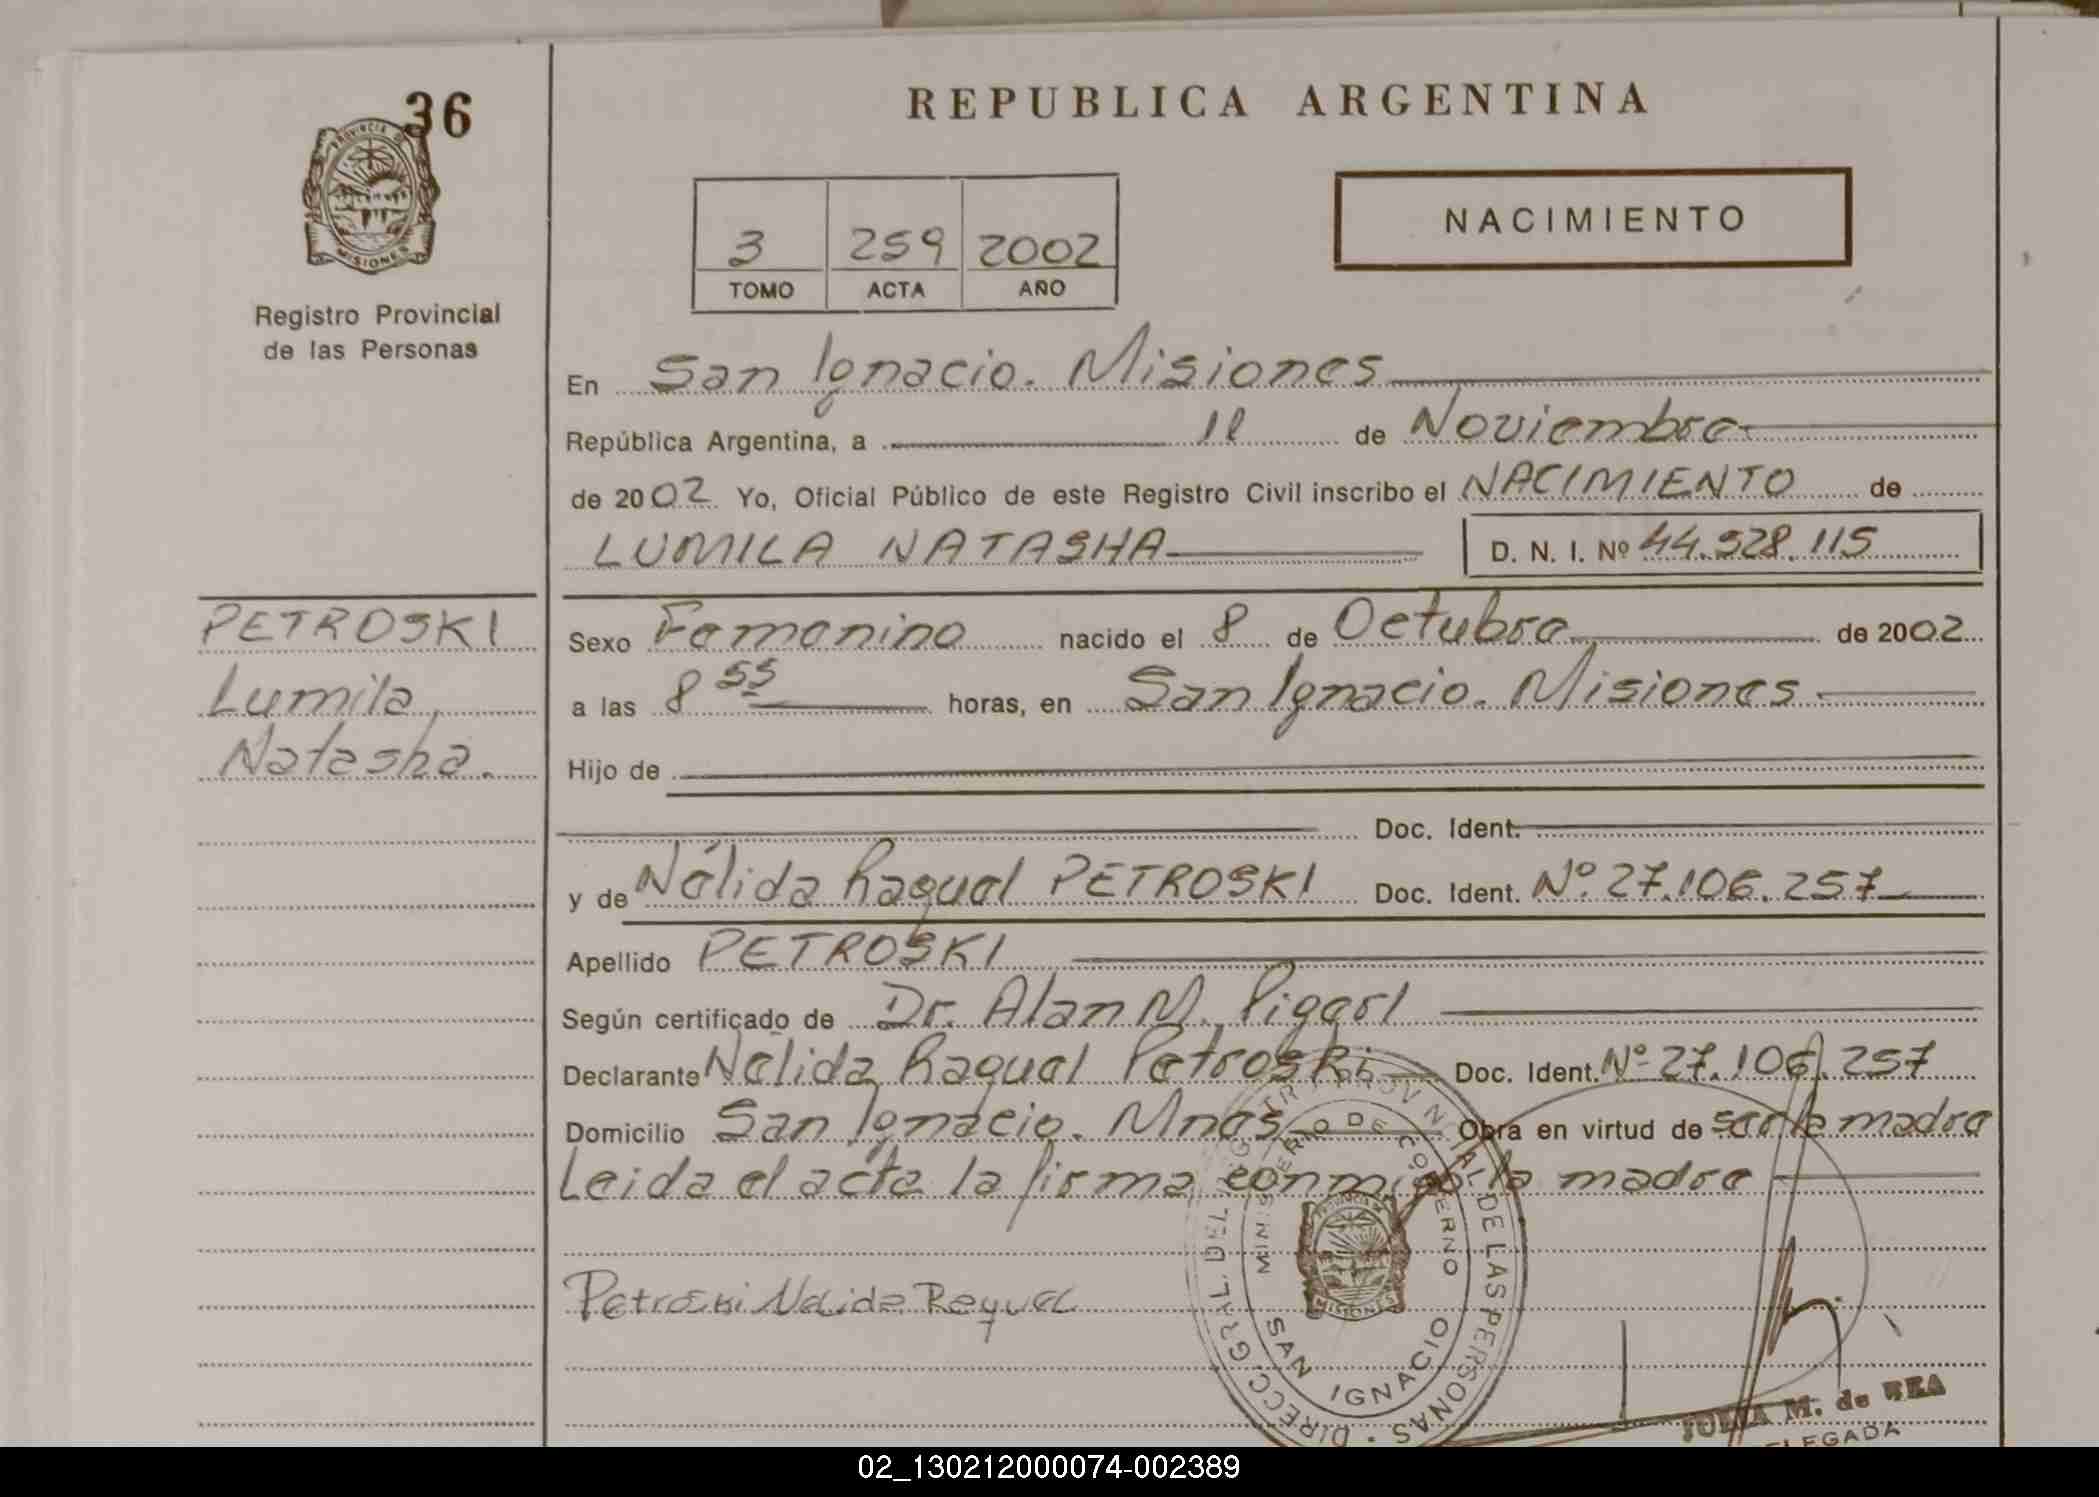 36
PROVINCIA DE
MISIONES
Registro Provincial
de las Personas
REPUBLICA ARGENTINA
3 259 2002
TOMO ACTA AÑO
NACIMIENTO
En San Ignacio. Misiones
República Argentina, a 11 de Noviembre
de 2002 Yo, Oficial Público de este Registro Civil inscribo el NACIMIENTO de
LUMILA NATASHA D. N. I. Nº 44.528.115
PETROSKI
Lumila
Natasha.
Sexo Femenino nacido el 8 de Octubre de 2002
a las 8 55 horas, en San Ignacio. Misiones
Hijo de
Doc. Ident.
y de Nélida Raquel PETROSKI Doc. Ident. Nº 27.106.257
Apellido PETROSKI
Según certificado de Dr. Alan M. Pigerl
Declarante Nélida Raquel Petroski Doc. Ident. Nº 27.106.257
Domicilio San Ignacio. Mnes Obra en virtud de ser la madre
Leida el acta la firma conmigo la madre
Petroski Nelida Raquel
DIRECC. GRAL. DEL REGISTRO PROVINCIAL DE LAS PERSONAS
MINISTERIO DE GOBIERNO
MISIONES
SAN IGNACIO
M. de REA
DELEGADA
02_130212000074-002389